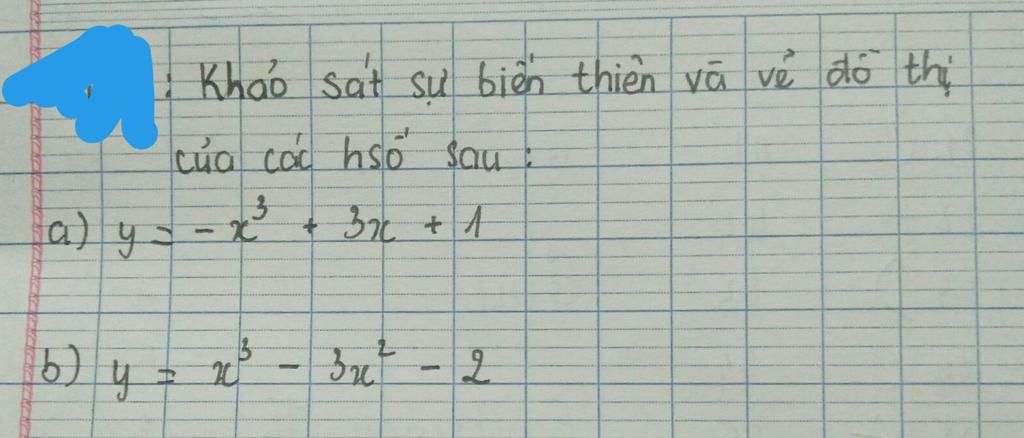 : Khảo sát sự biến thiên và vẽ đồ thị
của các hsố sau :
a) y = - x³ + 3x + 1
b) y = x³ - 3x² - 2